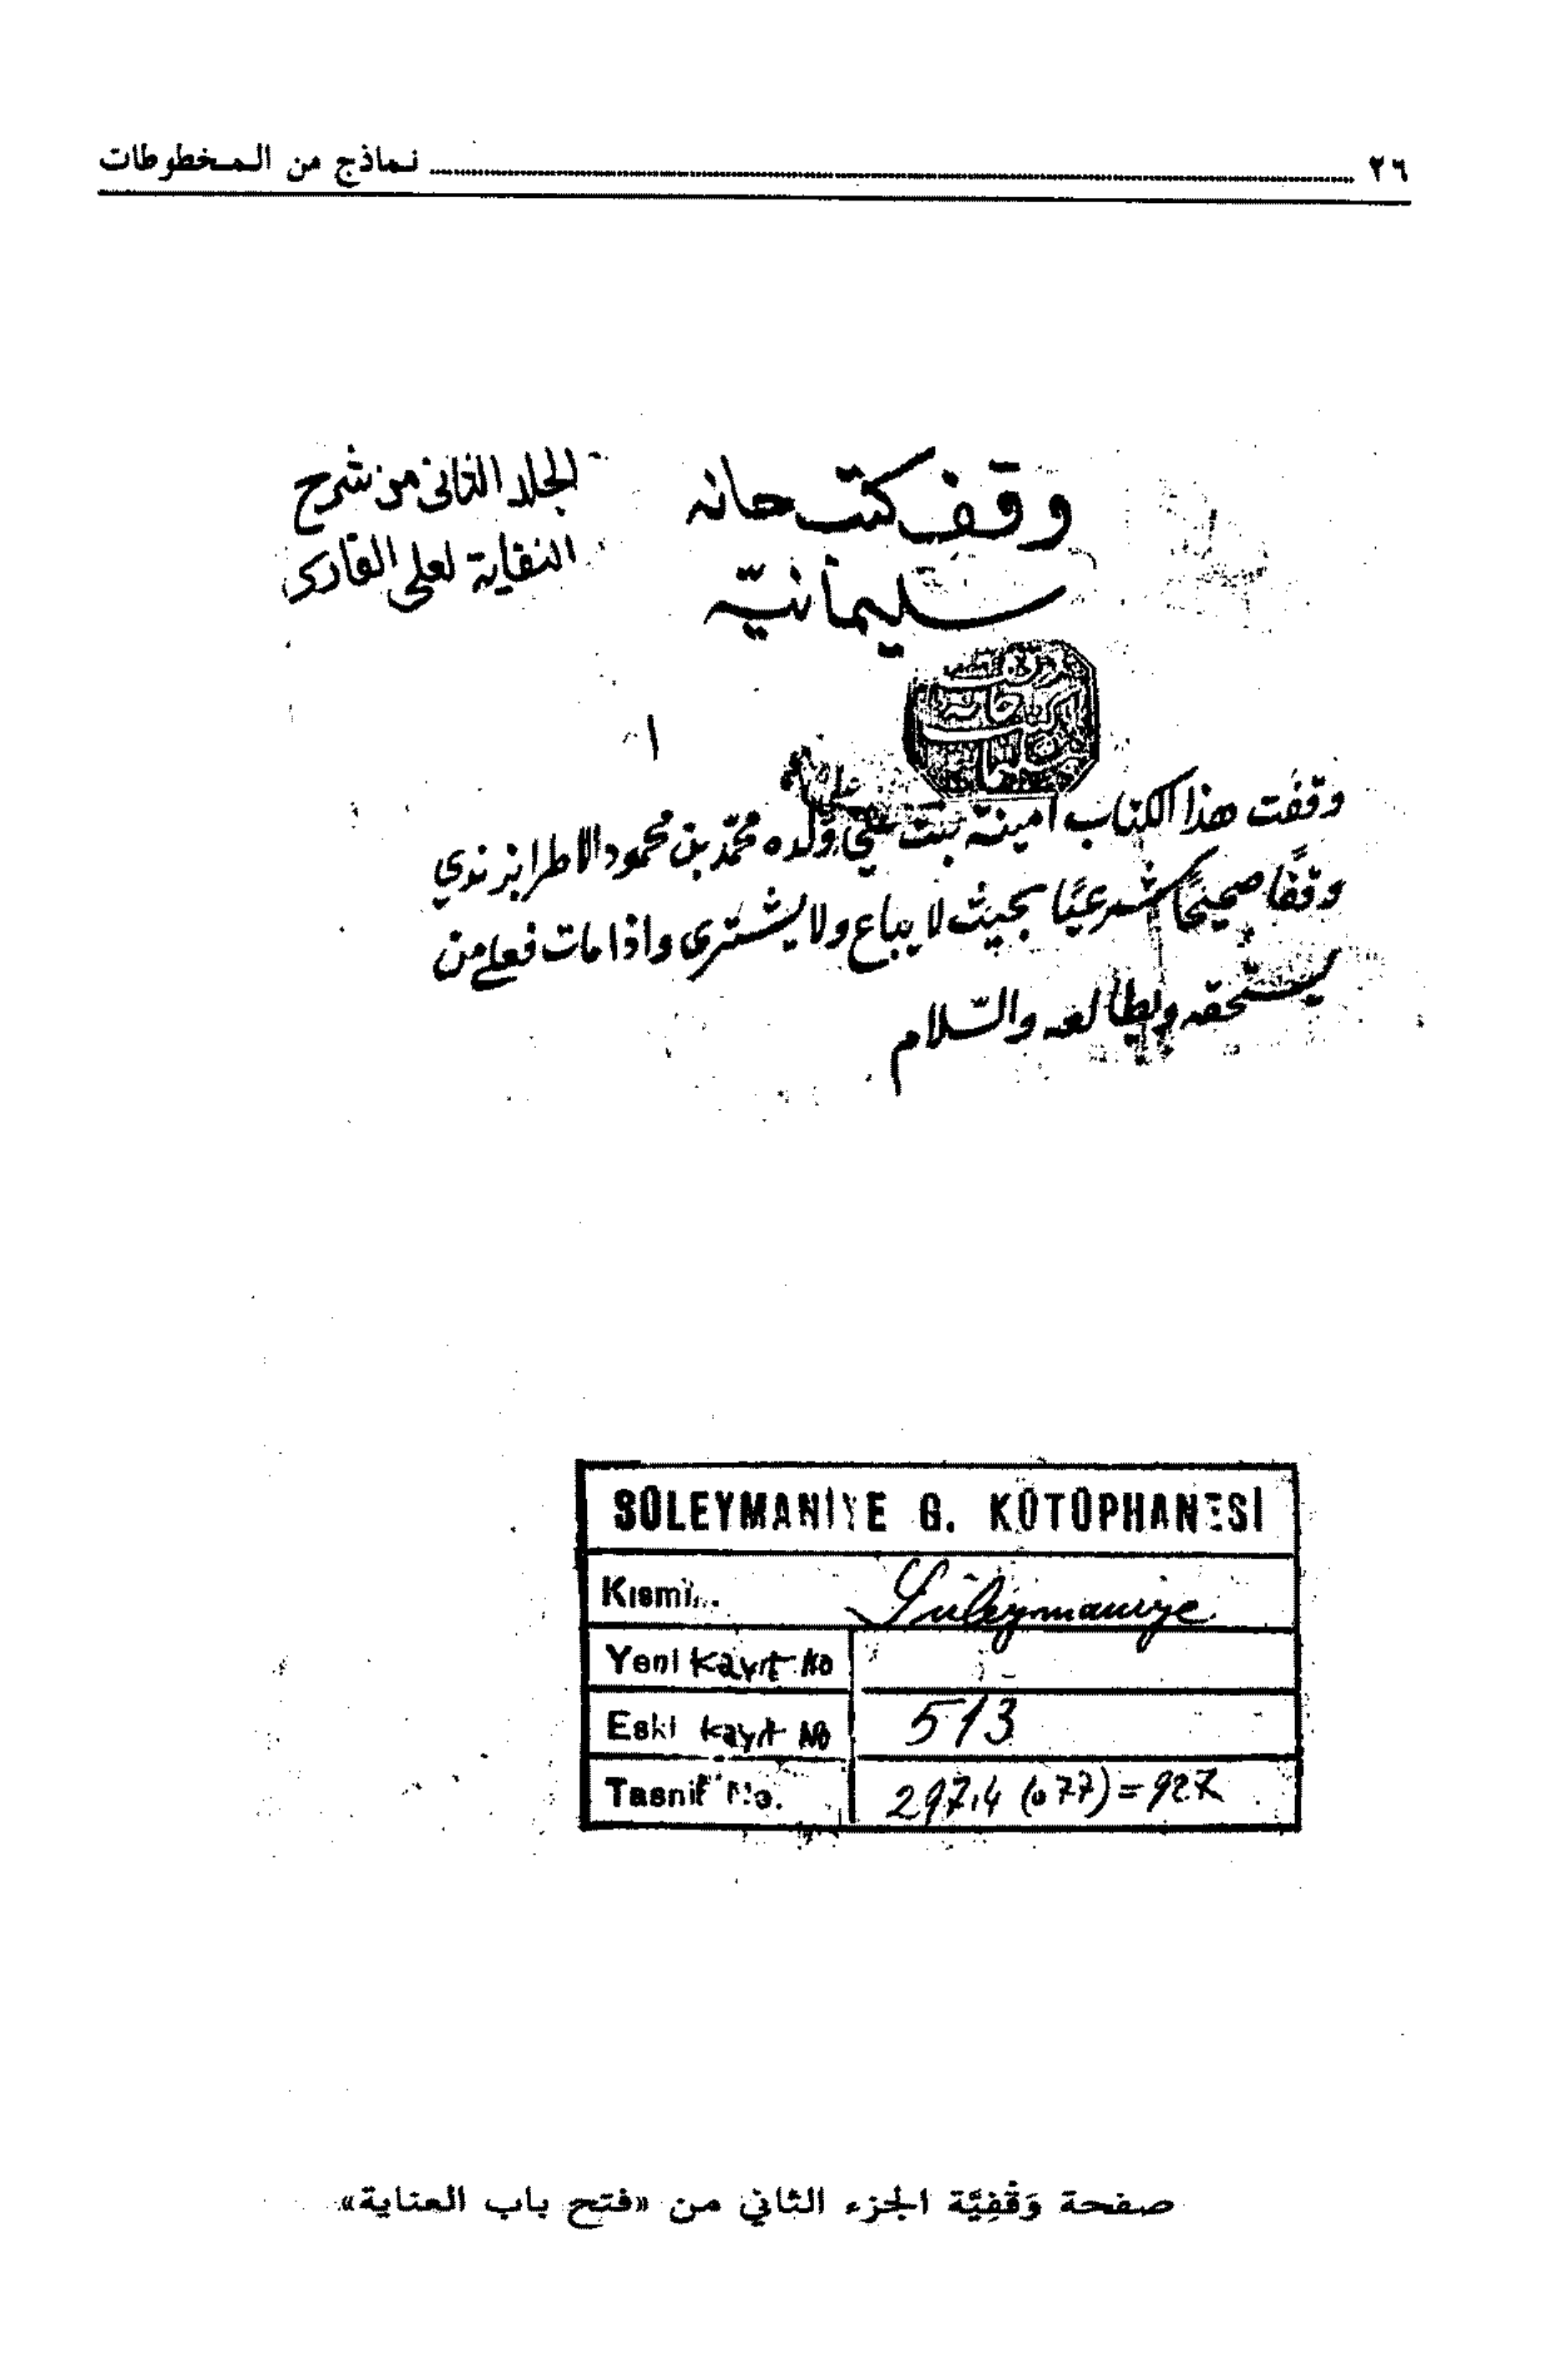 ٢٦ نماذج من المخطوطات
وقف كتب خانه
سليمانيّه
الجلد الثانى من شرح
النقاية لعلى القارى
وقفت هذا الكتاب امينة بنت على ولده محمّد بن محمود الاطرابزندي
وقفًا صحيحًا شرعيًا بحيث لا يباع ولا يشترى واذا مات فعلى من
يستحقه ويطالعه والسّلام
SÜLEYMANİYE G. KÜTÜPHANESİ
Kısmı Süleymaniye
Yeni Kayıt No
Eski Kayıt No 513
Tasnif No. 297.4 (077) = 927
صفحة وَقْفِيَّة الجزء الثاني من «فتح باب العناية»